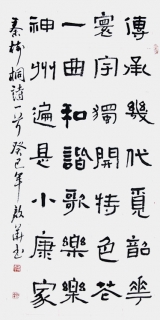 傳承幾代覓韶華
寰宇獨開特色花
一曲和諧歌樂樂
神州遍是小康家
秦樹桐詩一首 癸巳年 啟華書